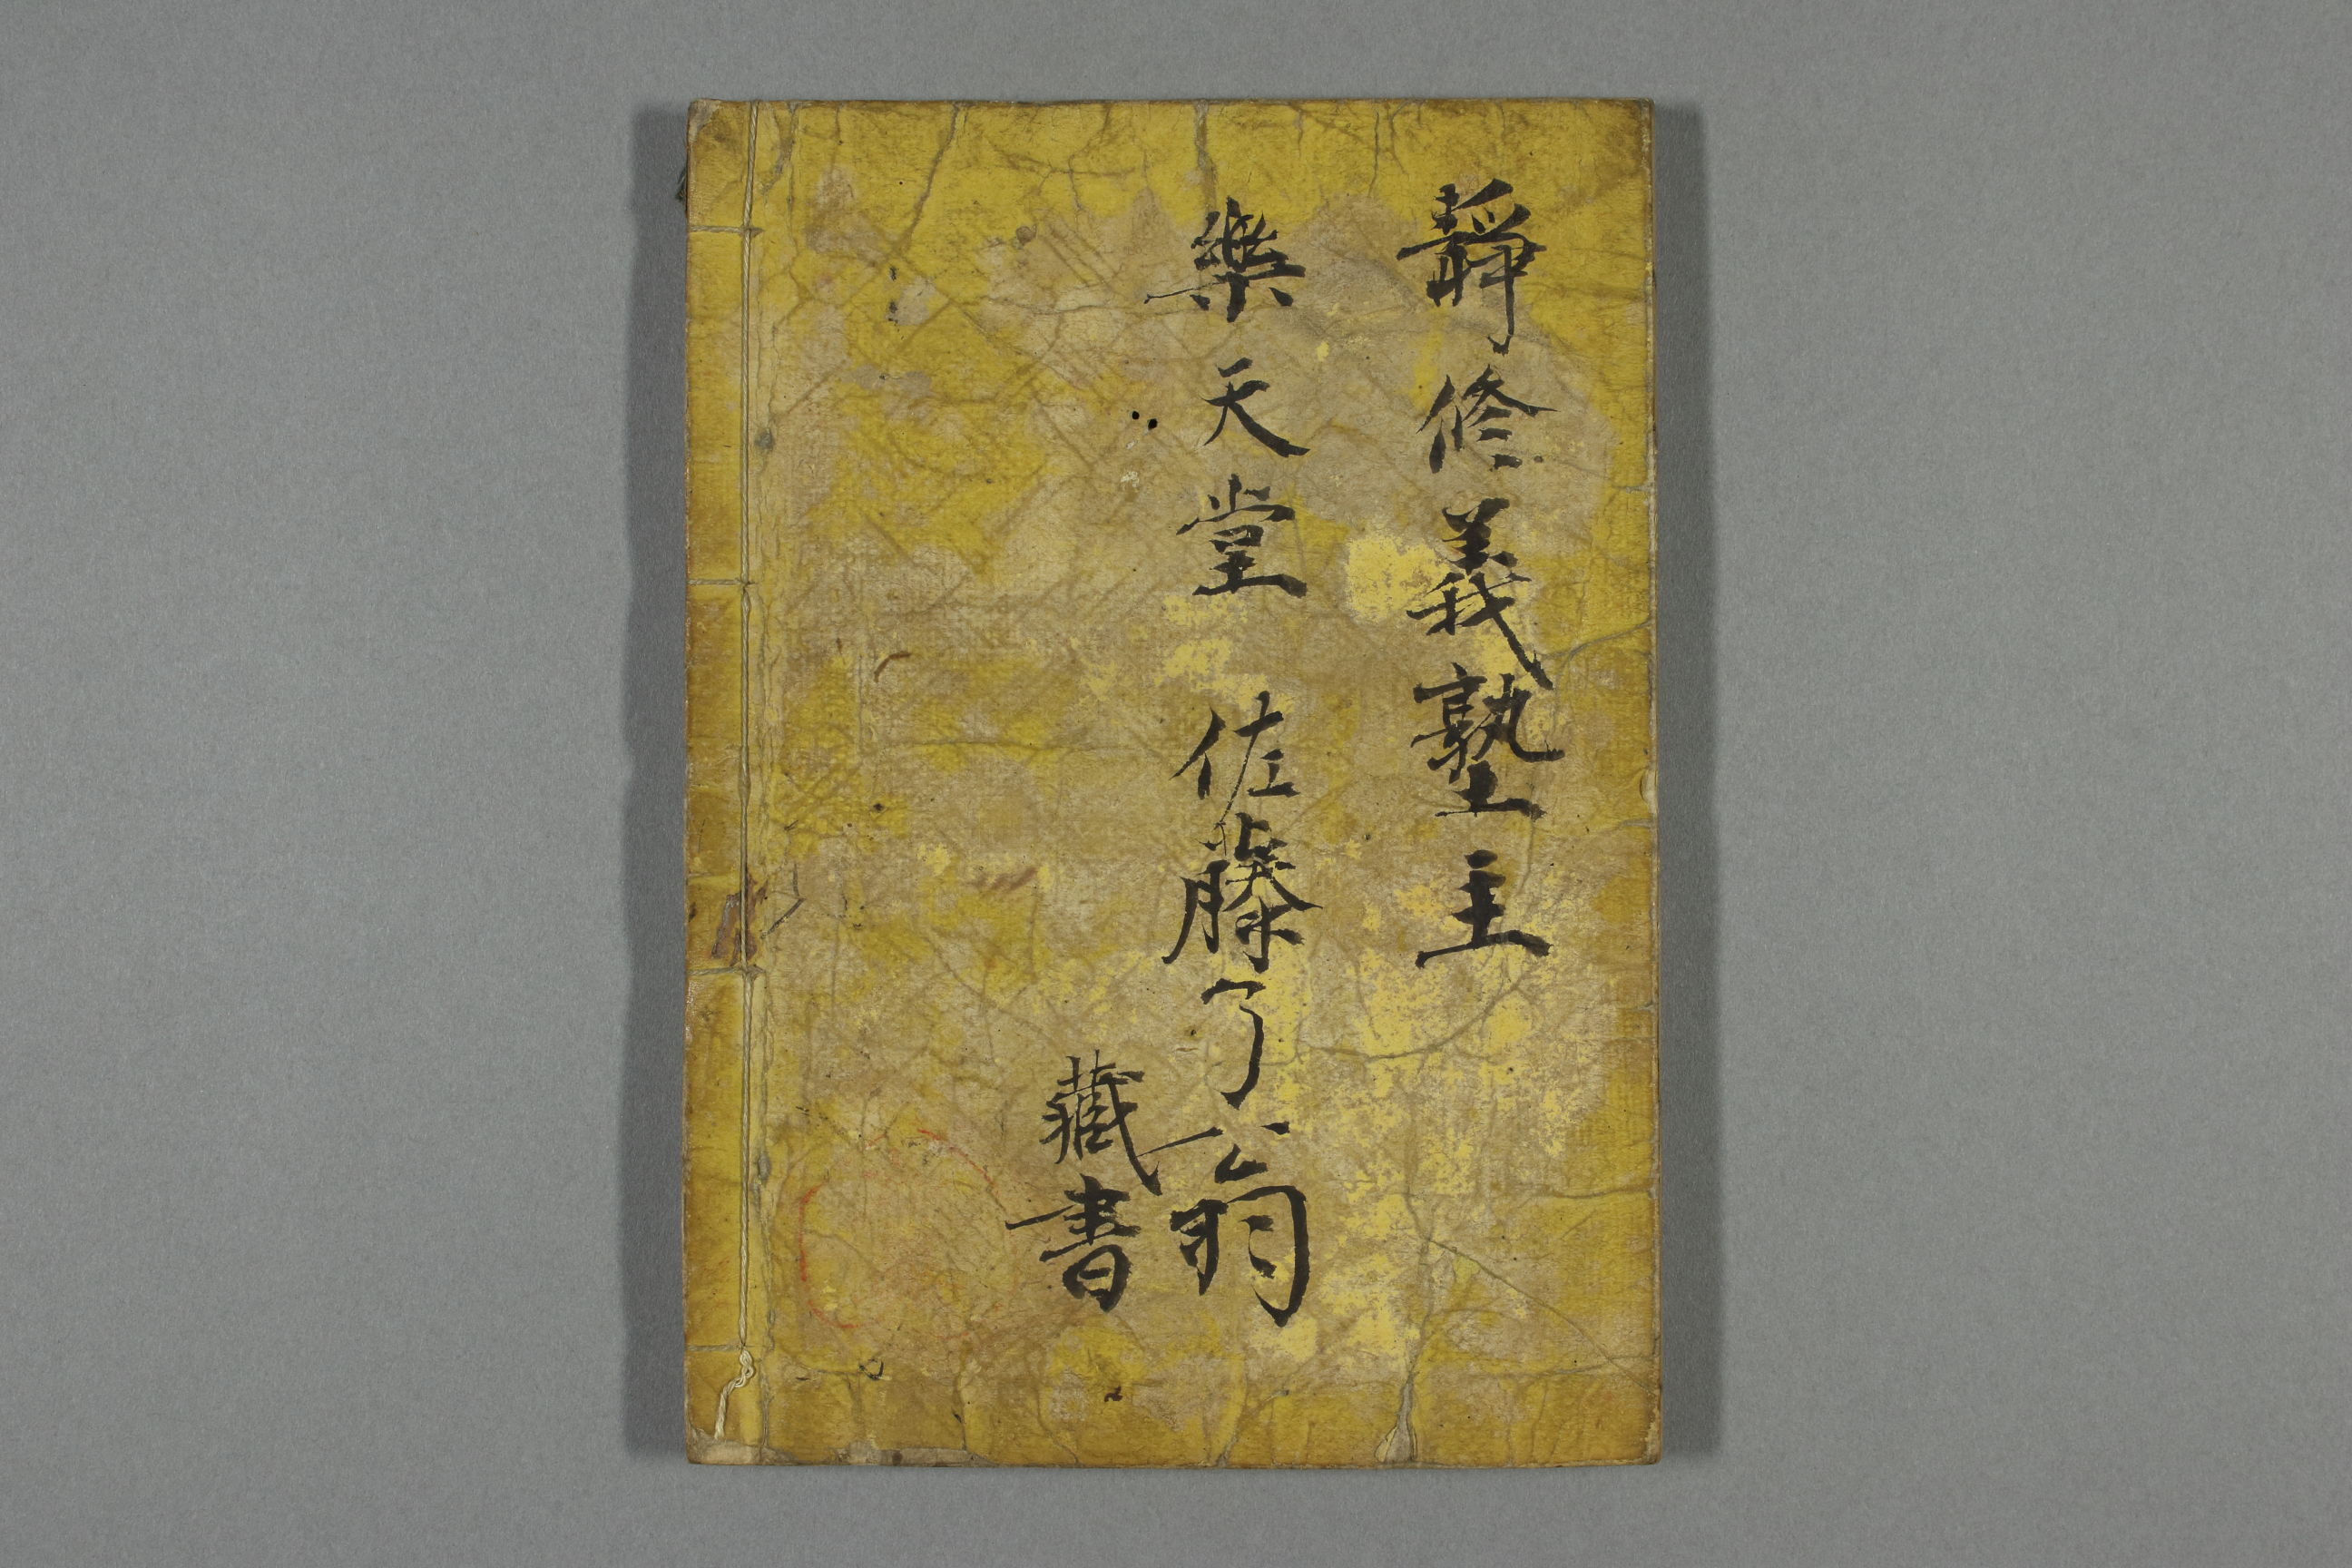 靜修義塾主
樂天堂 佐藤了翁
藏書